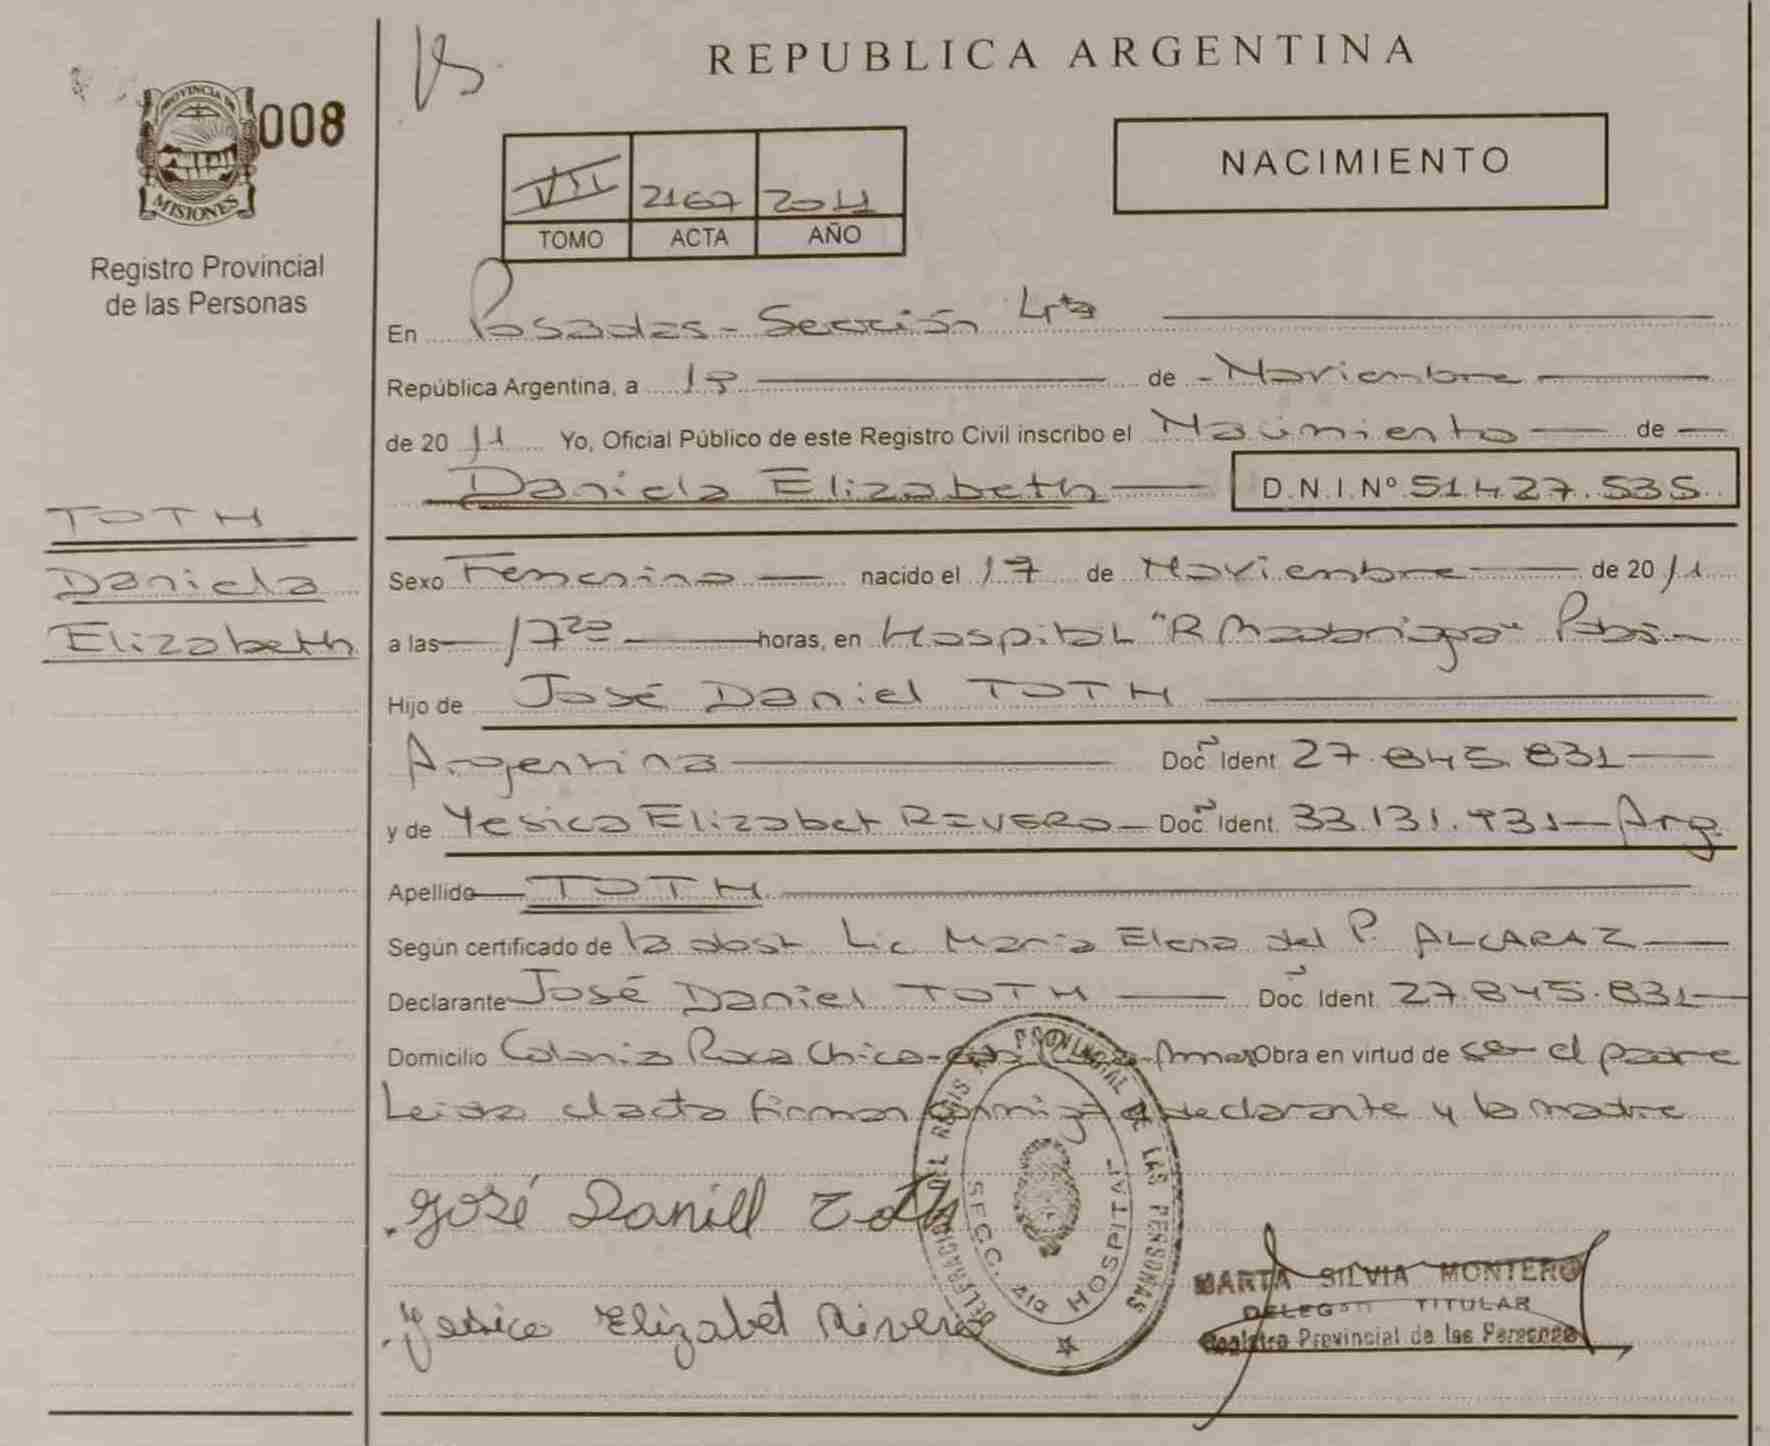 REPUBLICA ARGENTINA
PROVINCIA DE
MISIONES
008
Registro Provincial
de las Personas
NACIMIENTO
VII 2167 2011
TOMO ACTA AÑO
En Posadas - Sección 4ta
República Argentina, a de - Noviembre
de 20 11 Yo, Oficial Público de este Registro Civil inscribo el Nacimiento de
Daniela Elizabeth D.N.I.Nº 51.427.535
TOTH
Daniela
Elizabeth
Sexo Femenino nacido el 17 de Noviembre de 20 11
a las 17 20 horas, en Hospital "R Madariaga" Pdas
Hijo de José Daniel TOTH
Argentina Doc Ident 27.845.831
y de Yesica Elizabet RIVERO Doc Ident. 33.131.931 Arg.
Apellido TOTH
Según certificado de la obst Lic Maria Elena del P. ALCARAZ
Declarante José Daniel TOTH Doc Ident. 27.845.831
Domicilio Colonia Roca Chica - Obra en virtud de ser el padre
Leida el acta firman conmigo el declarante y la madre
José Daniel Toth
Yesica Elizabet Rivero
DELEGACION DEL REGISTRO PROVINCIAL DE LAS PERSONAS
SECC. 4ta HOSPITAL
MARTA SILVIA MONTERO
DELEGADA TITULAR
Registro Provincial de las Personas